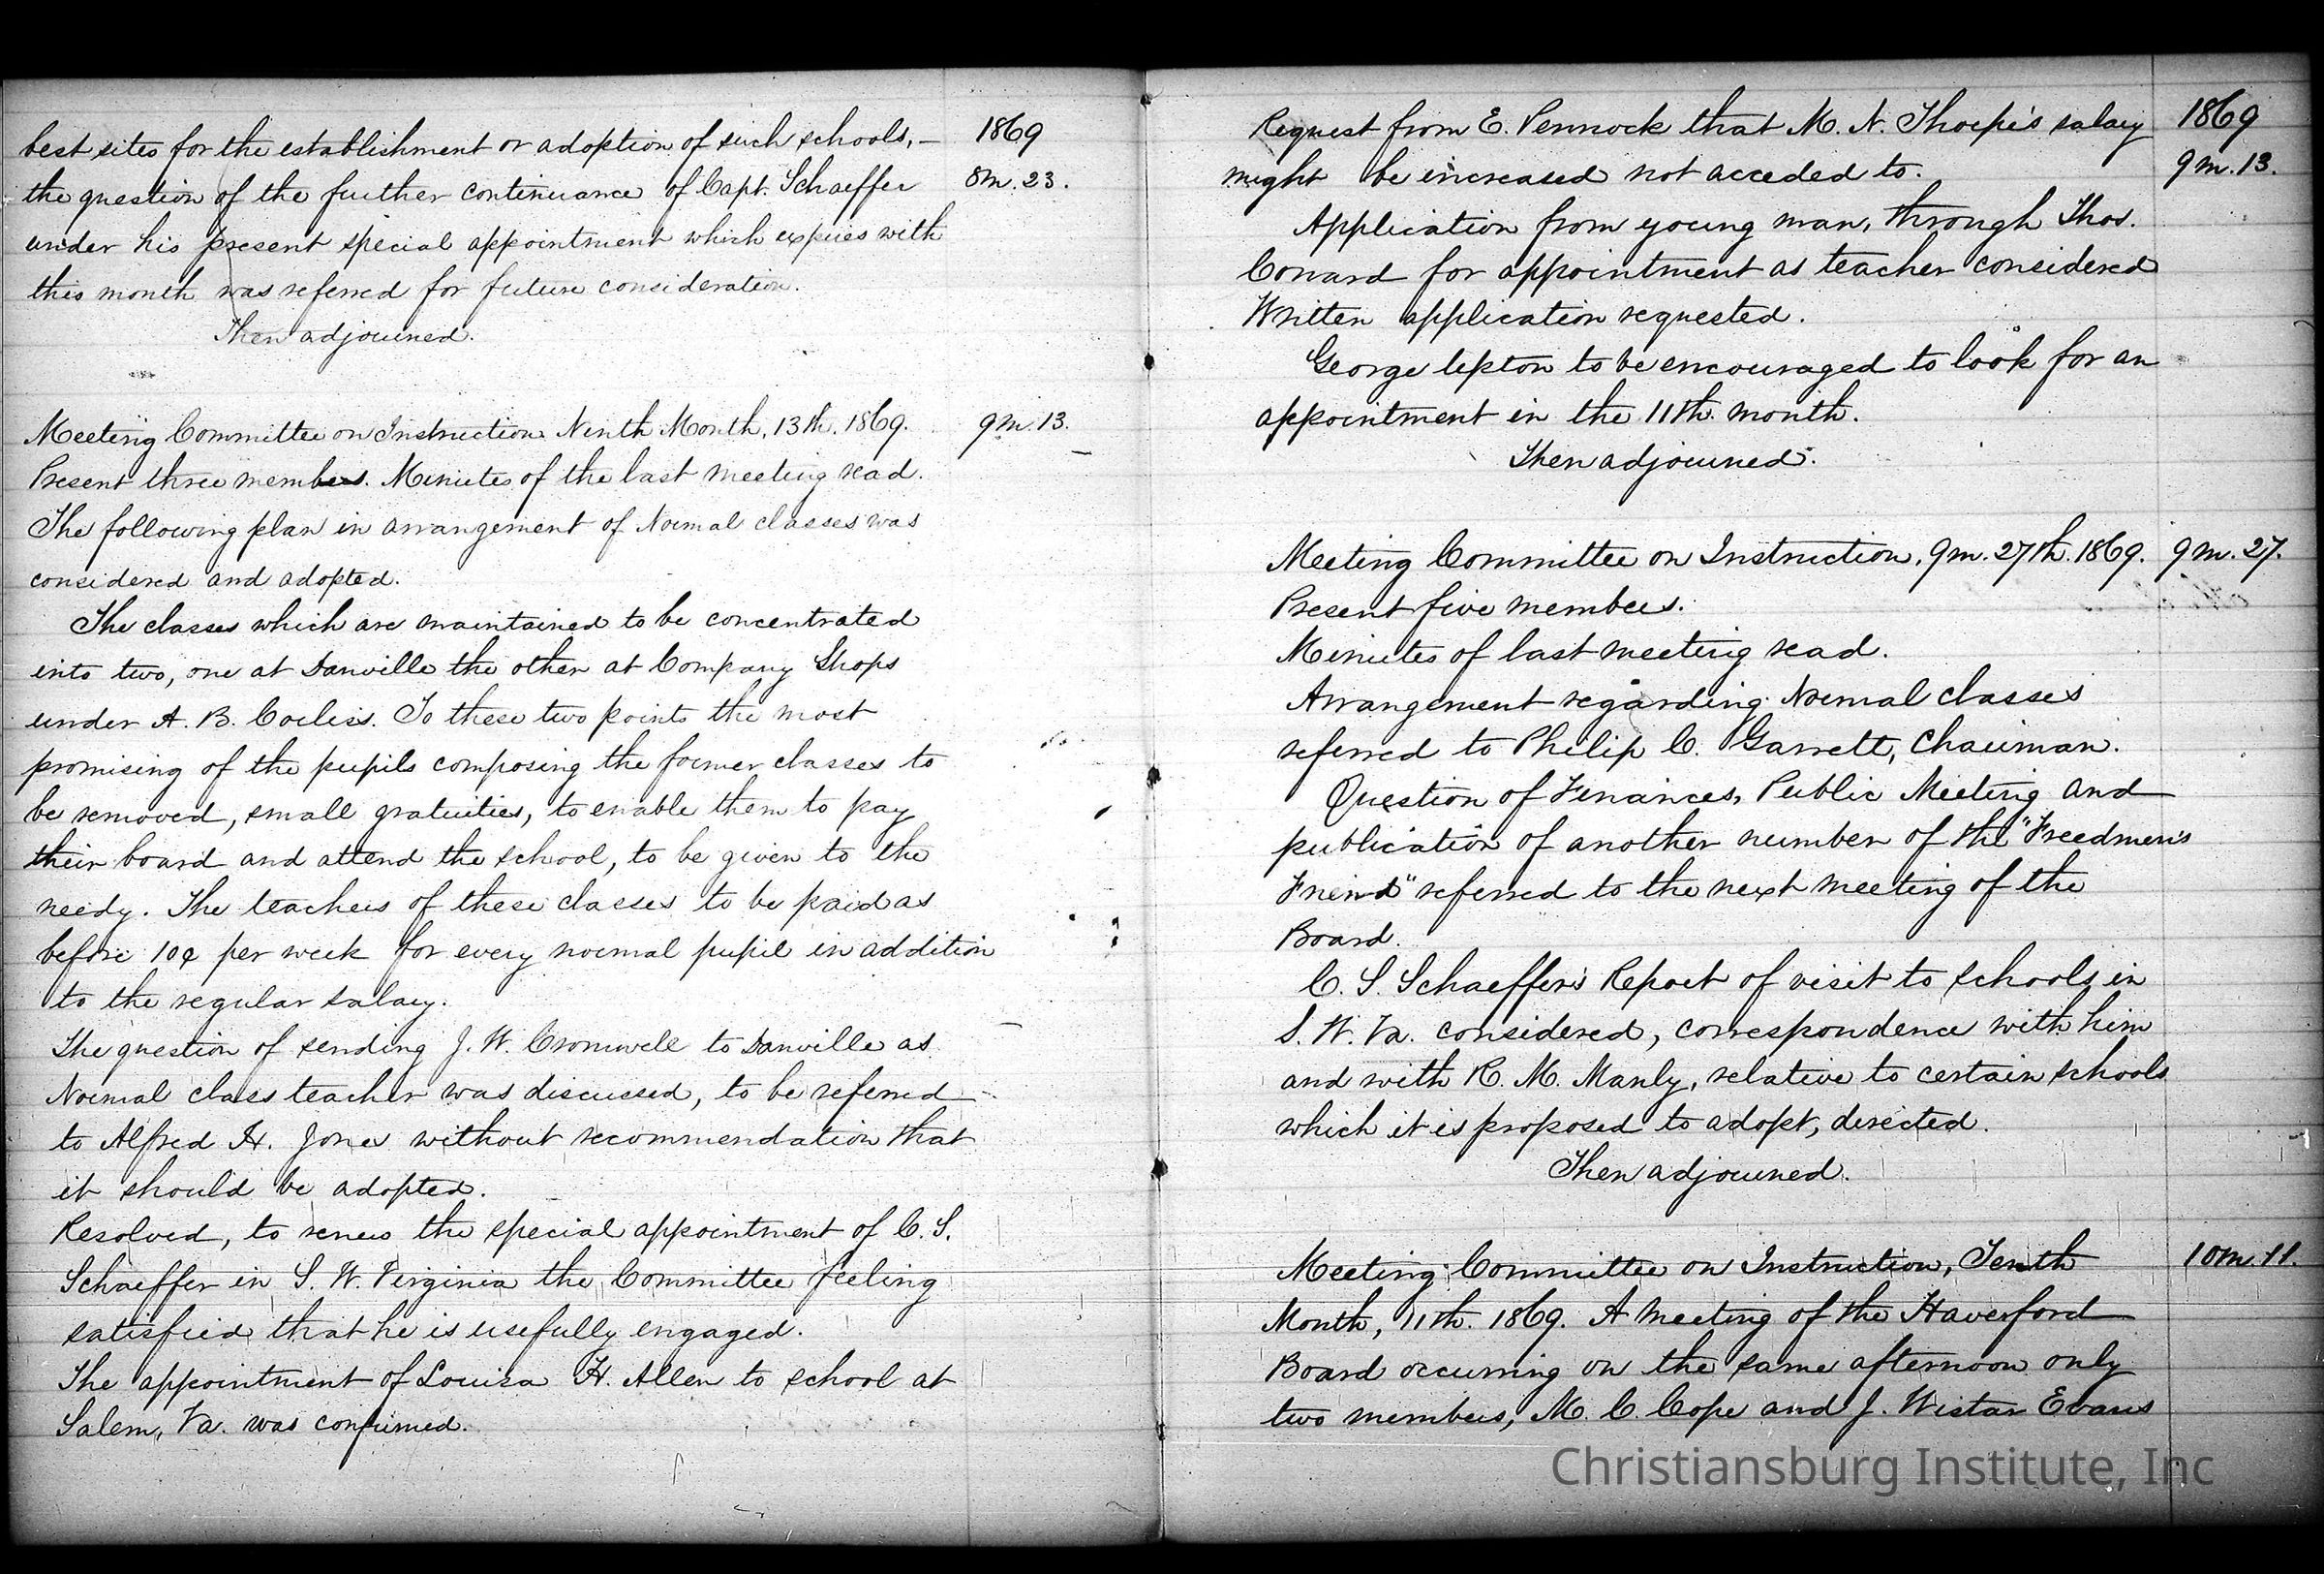 best sites for the establishment or adoption of such schools, —
1869
the question of the further continuance of Capt. Schaeffer
8m. 23.
under his present special appointment which expires with
this month was referred for future consideration.
Then adjourned.
Meeting Committee on Instruction Ninth Month, 13th. 1869.
9m. 13.
Present three members. Minutes of the last meeting read.
The following plan in arrangement of Normal classes was
considered and adopted.
The classes which are maintained to be concentrated
into two, one at Danville the other at Company Shops
under A. B. Corliss. To these two points the most
promising of the pupils composing the former classes to
be removed, small gratuities, to enable them to pay
their board and attend the school, to be given to the
needy. The teachers of these classes to be paid as
before 10¢ per week for every normal pupil in addition
to the regular salary.
The question of sending J. W. Cromwell to Danville as
Normal class teacher was discussed, to be referred
to Alfred H. Jones without recommendation that
it should be adopted.
Resolved, to renew the special appointment of C. S.
Schaeffer in S. W. Virginia the Committee feeling
satisfied that he is usefully engaged.
The appointment of Louisa H. Allen to school at
Salem, Va. was confirmed.
Request from E. Pennock that M. N. Thorpe's salary
1869
might be increased not acceded to.
9m. 13.
Application from young man, through Thos.
Conard for appointment as teacher considered
Written application requested.
George Lepton to be encouraged to look for an
appointment in the 11th. month.
Then adjourned.
Meeting Committee on Instruction, 9m. 27th. 1869.
9m. 27.
Present five members.
Minutes of last meeting read.
Arrangement regarding Normal classes
referred to Philip C. Garrett, Chairman.
Question of Finances, Public Meeting and
publication of another number of the "Freedmen's
Friend" referred to the next meeting of the
Board.
C. S. Schaeffer's Report of visit to schools in
S. W. Va. considered, correspondence with him
and with R. M. Manly, relative to certain schools
which it is proposed to adopt, directed.
Then adjourned.
Meeting Committee on Instruction, Tenth
10m. 11.
Month, 11th. 1869. A meeting of the Haverford
Board occurring on the same afternoon only
two members, M. C. Cope and J. Wistar Evans
Christiansburg Institute, Inc